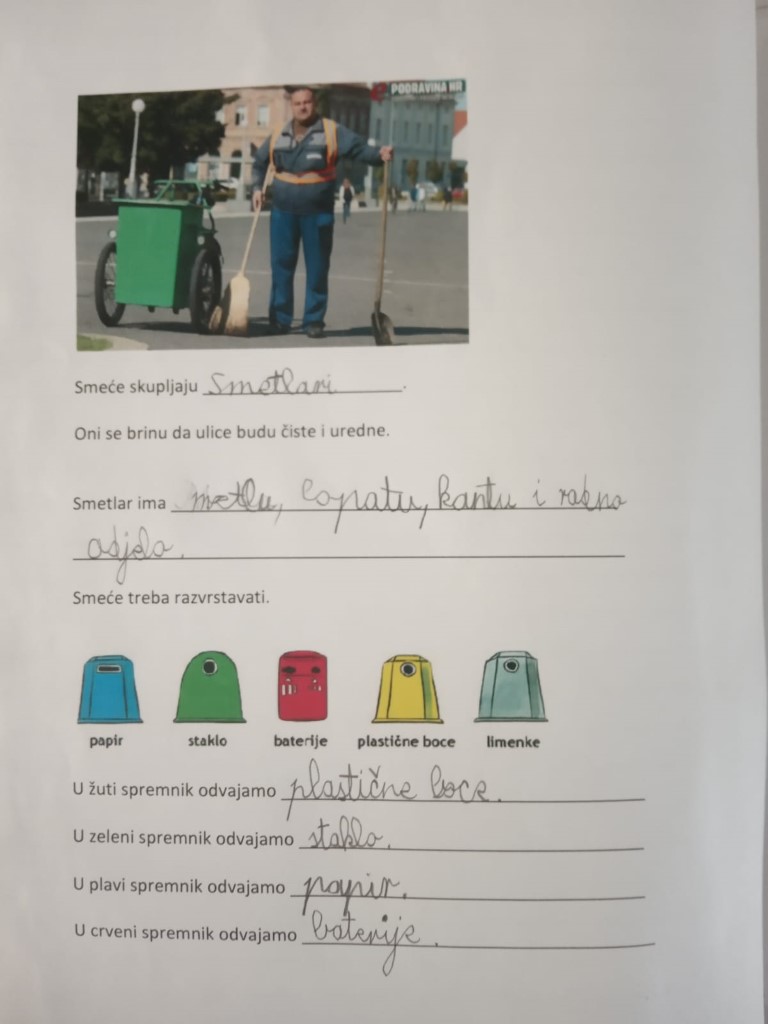 PODRAVINA HR
Smeće skupljaju smetlari.
Oni se brinu da ulice budu čiste i uredne.
Smetlar ima metlu, lopatu, kantu i radno
odjelo.
Smeće treba razvrstavati.
papir staklo baterije plastične boce limenke
U žuti spremnik odvajamo plastične boce.
U zeleni spremnik odvajamo staklo.
U plavi spremnik odvajamo papir.
U crveni spremnik odvajamo baterije.